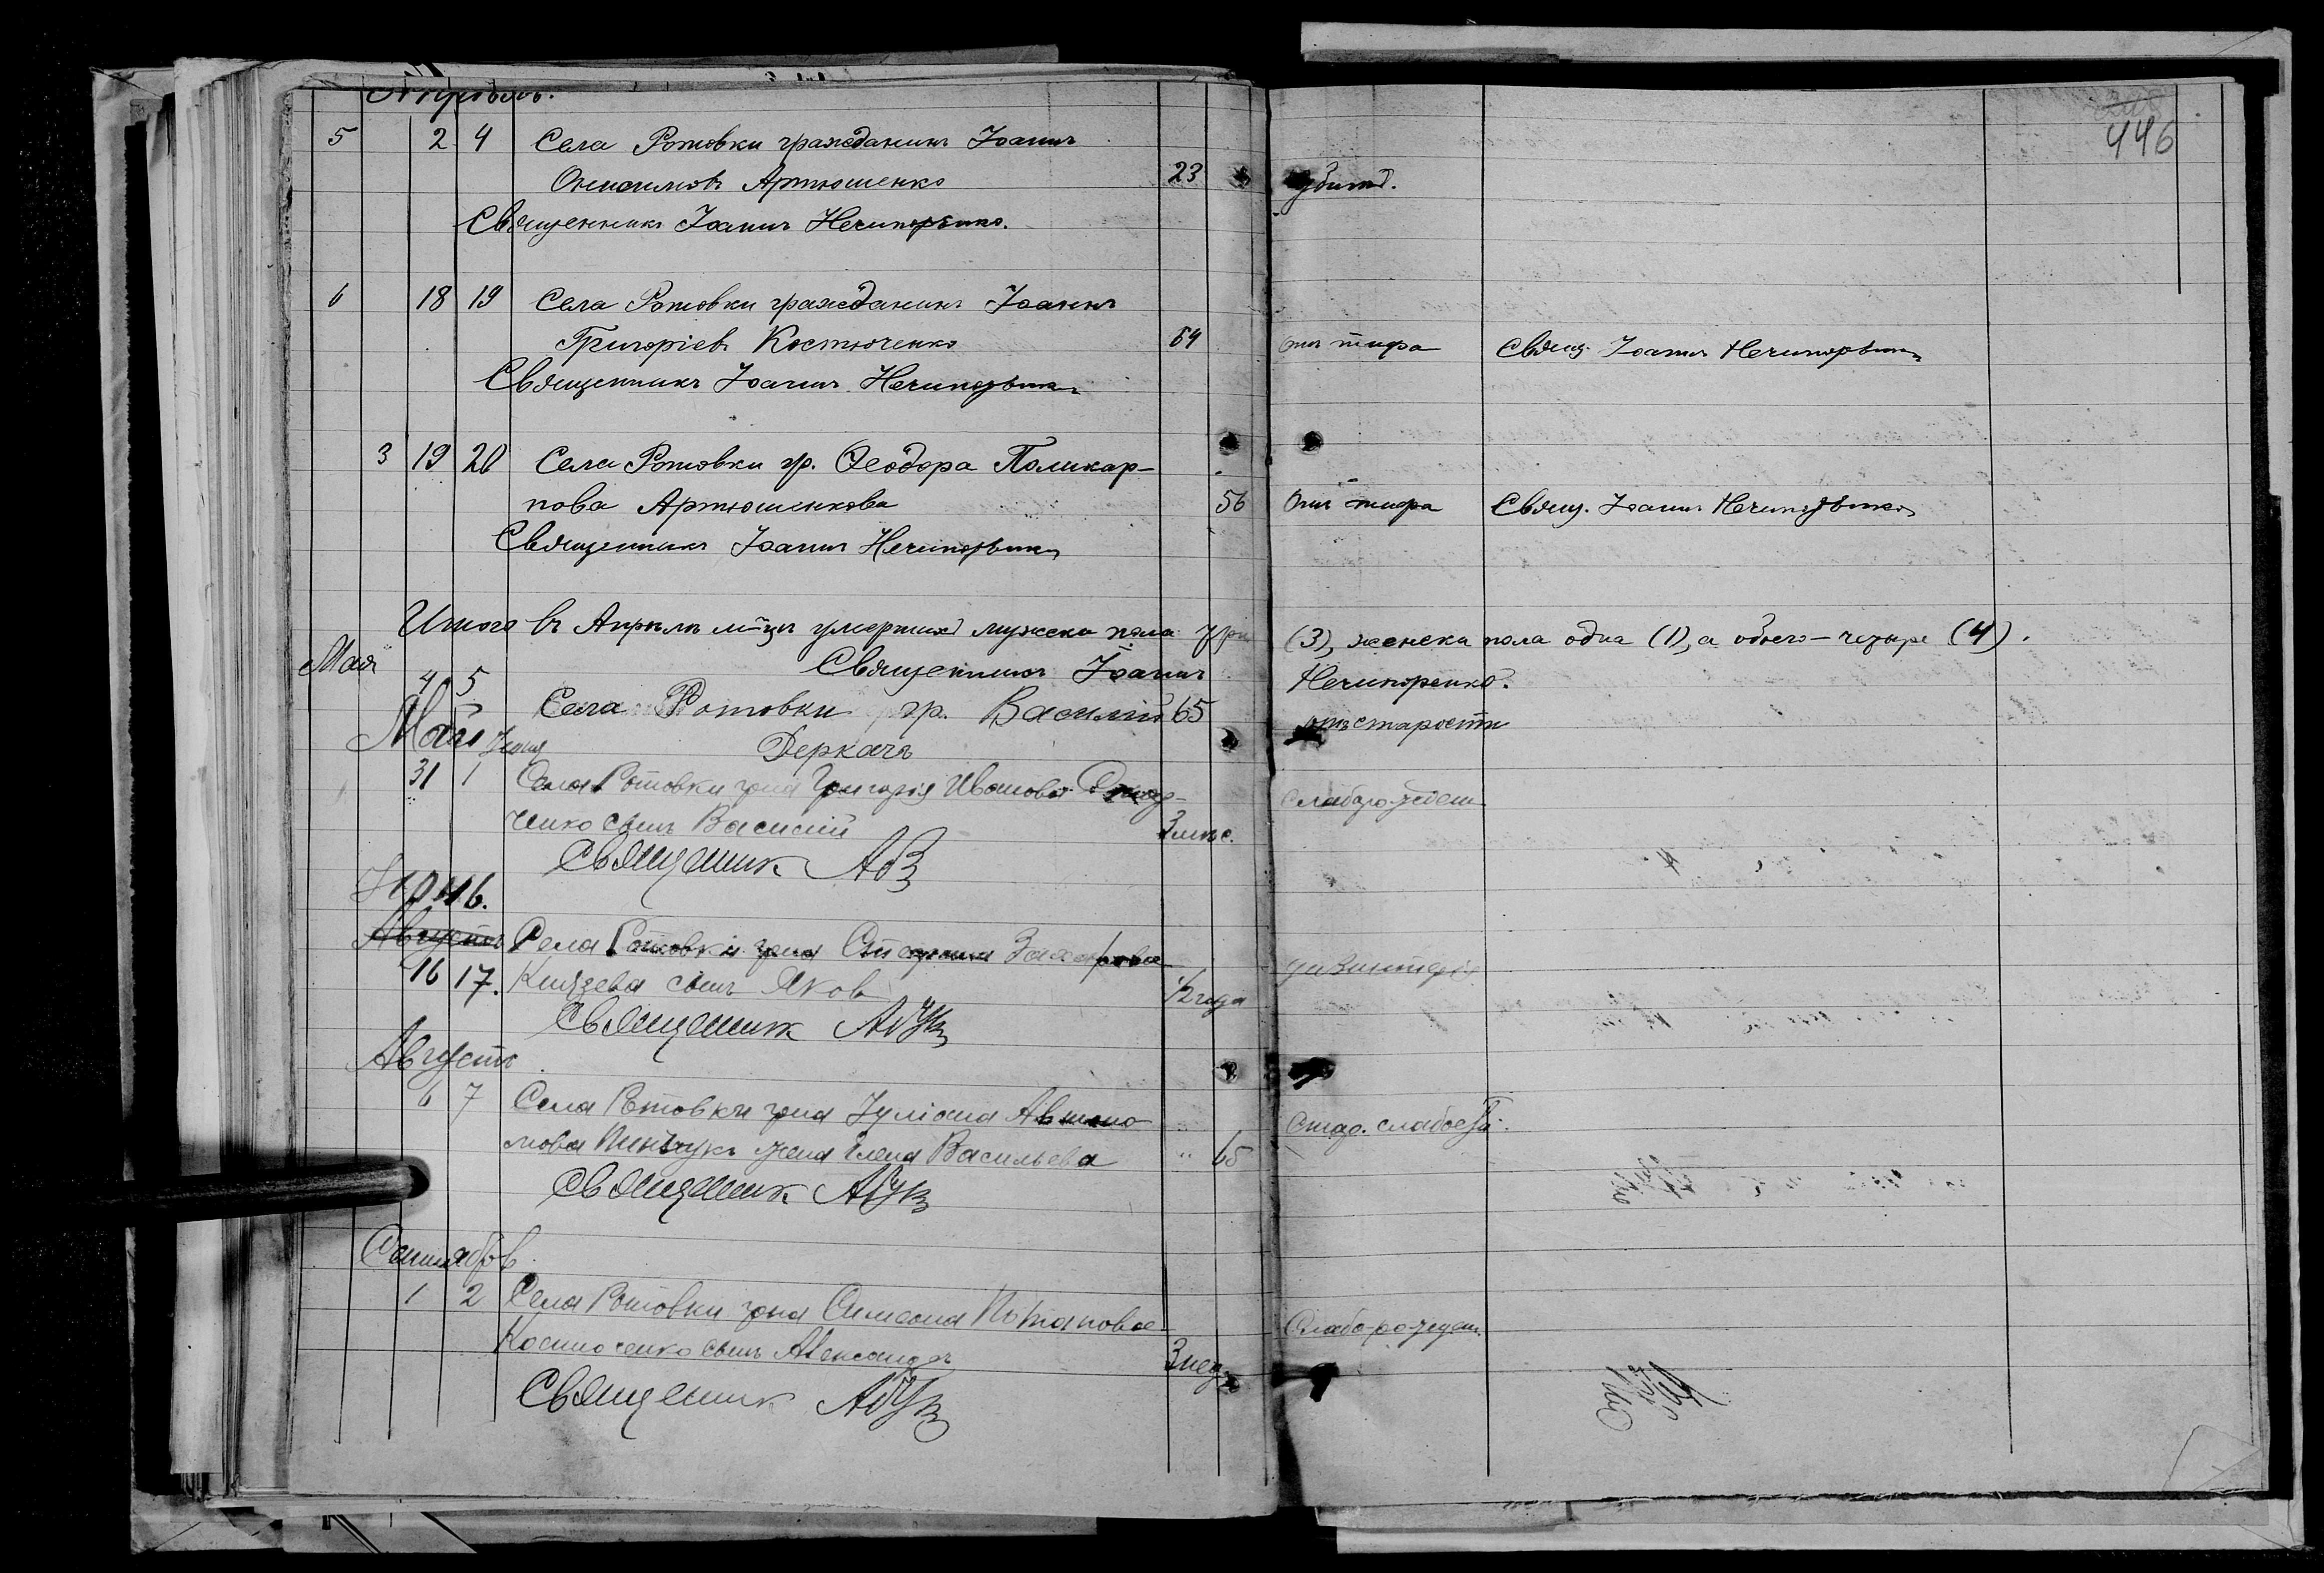 Апрѣль.
446
5 2 4 Села Ротовки гражданинъ Іоаннъ
Онисимовъ Артюшенко 23 убитъ.
Священникъ Іоаннъ Нечипоренко.
6 18 19 Села Ротовки гражданинъ Іоаннъ
Григоріевъ Костюченко 64 отъ тифа Свящ. Іоаннъ Нечипоренко
Священникъ Іоаннъ Нечипоренко
3 19 20 Села Ротовки гр. Ѳеодора Поликар-
пова Артюшенкова 56 отъ тифа Свящ. Іоаннъ Нечипоренко
Священникъ Іоаннъ Нечипоренко
Итого въ Апрѣлѣ м-цѣ умершихъ мужска пола три (3), женска пола одна (1), а обоего - четыре (4).
Мая Священникъ Іоаннъ Нечипоренко.
4 5 Села Ротовки гр. Василій 65 отъ старости
Май Іюня Деркачъ
31 1 Села Ротовки гр-на Григорія Иванова
ченко сынъ Василій 3 мѣс. слаборожден.
Священник
Іюнь.
Августъ Села Ротовки гр-на Захарова
16 17. Князева сынъ Яков 1/2 года дизинтерія
Священник
Августъ
6 7 Села Ротовки гр-на Іуліана Автоно
мова Пинчукъ жена Елена Васильева " 65 слабость.
Священник
Сентябрь
1 2 Села Ротовки гр-на Симеона Потапова
Костюченко сынъ Александръ 3 нед. Слаборожден.
Священник